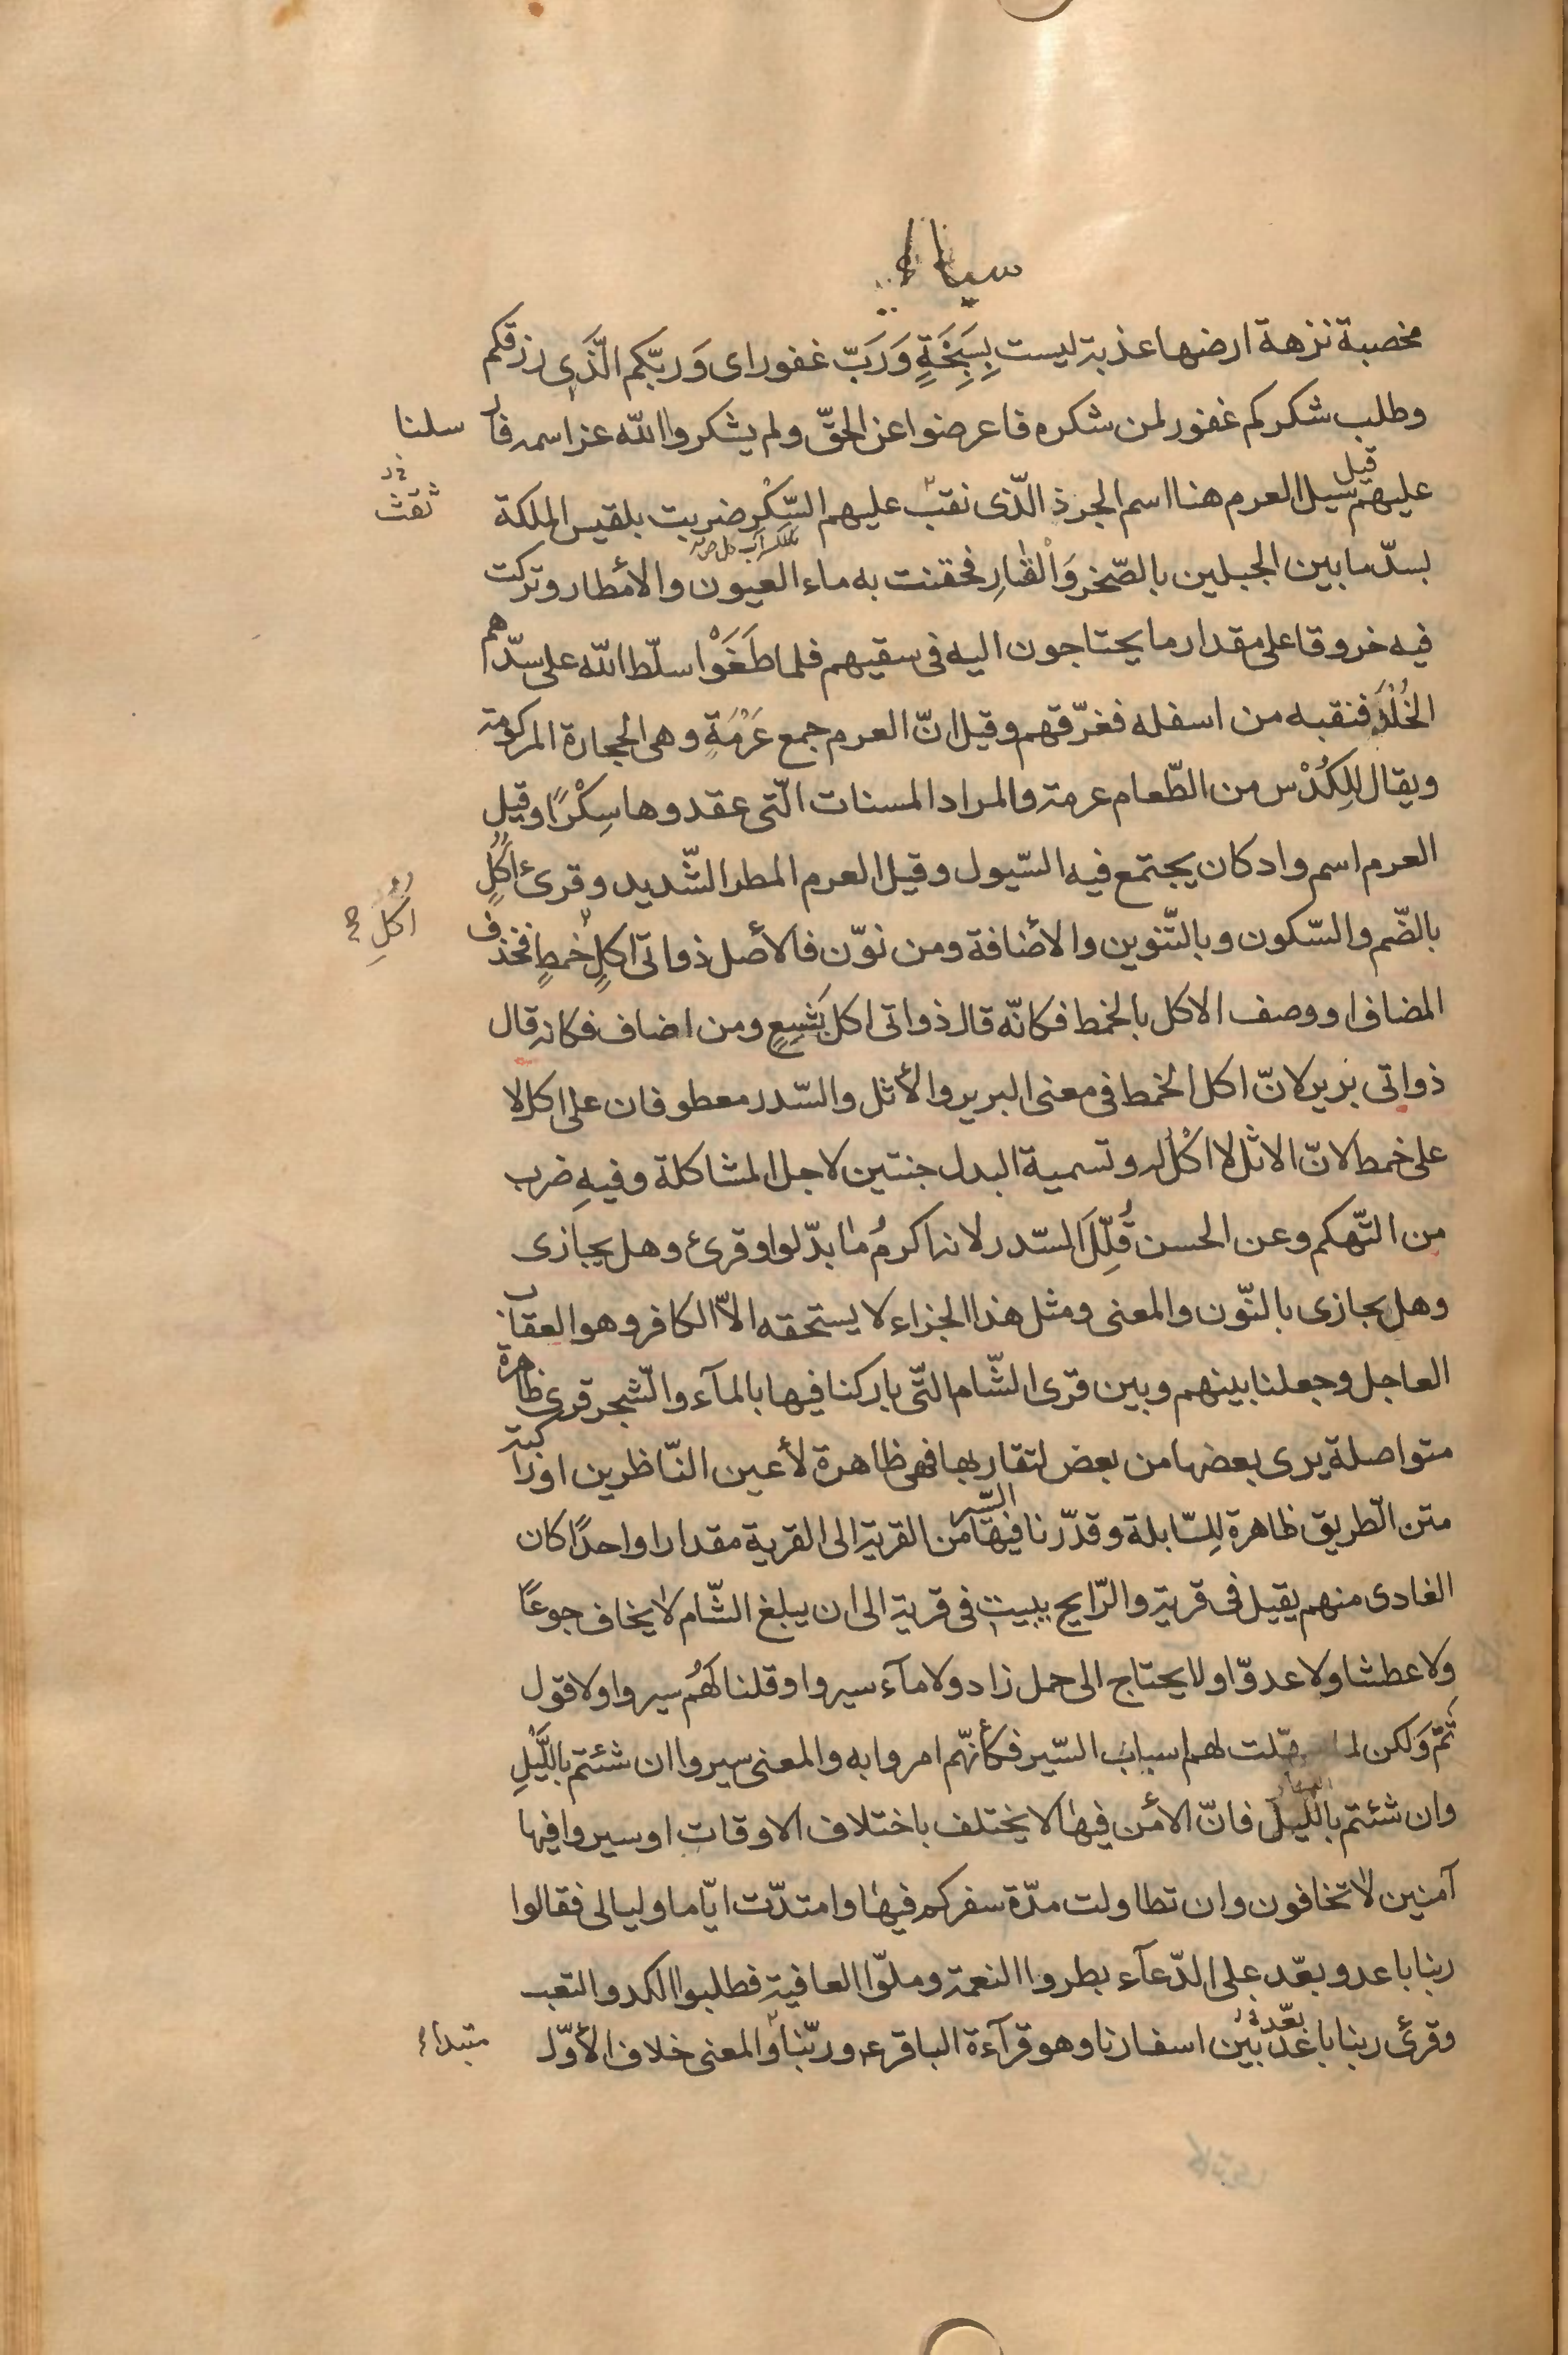 سباء
مخصبة نزهة ارضها عذبة ليست بِسَبِخَةٍ وَرَبّ غفور اى وَربّكم الّذَى رزقكم
وطلب شكركم غفور لمن شكره فاعرضوا عن الحقّ ولم يشكروا اللّه عز اسمه فار سلنا
عليهم سيل العرم قيل هنا اسم الجرذ الّذى نقب عليهم السِّكْر ضربت بلقيس الملكة
ثقث
بسدّ ما بين الجبلين بالصّخر وَالْقارِ فحقنت به ماء العيون والأمطار وتركت
فيه خروقا على مقدار ما يحتاجون اليه فى سقيهم فلما طَغَوْا سلّط اللّه على سدّهم
الخُلْدَ فنقبه من اسفله فغرّقهم وقيل انّ العرم جمع عَرْمَةٍ وهى الحجارة المركومة
ويقال لِلكُدْس من الطّعام عرمة والمراد المسنات الّتى عقدوها سِكْرًا وقيل
العرم اسم واد كان يجتمع فيه السّيول وقيل العرم المطر الشّديد وقرئ اكلٍ
اُكُلِ
بالضّم والسّكون وبالتّنوين والأضافة ومن نوّن فالأصل ذواتى اكلٍ خمطٍ فحذف
المضاف او وصف الاكل بالخمط فكانّه قال ذواتى اكل بَشِعٍ ومن اضاف فكانه قال
ذواتى برير لانّ اكل الخمط فى معنى البرير والأثل والسّدر معطوفان على اكل لا
على خمط لانّ الاثل لا اكْل له وتسمية البدل جنتين لاجل المشاكلة وفيهِ ضرب
من التّهكم وعن الحسن قُلِّلَ السّدر لانه اكرمُ ما بدّلوا وقرئ وهل يجازى
وهل يجازى بالنّون والمعنى ومثل هذا الجزاء لا يستحقه الاّ الكافر وهو العقاب
العاجل وجعلنا بينهم وبين قرى الشّام التّى باركنا فيها بالمآء والشّجر قرى ظاهرة
متواصلة يرى بعضها من بعض لتقاربها فهى ظاهرة لأعين النّاظرين او راكبة
متن الطريق ظاهرة لِلسّابلة وقدّرنا فيها السّير من القرية الى القرية مقدارا واحدًا كان
الغادى منهم يقيل فى قرية والرّايح يبيت فى قرية الى ان يبلغ الشّام لا يخاف جوعًا
ولا عطشا ولا عدوّا ولا يحتاج الى حمل زاد ولا مآء سيروا وقلنا لَهُم سيروا ولا قول
ثَمّ وَلكن لما لهم اسباب السّير فكأنهّم امروا به والمعنى سيروا ان شئتم باللّيْلِ
وان شئتم بالليل النهار فانّ الأمن فيها لا يختلف باختلاف الاوقات او سيروا فيها
آمنين لا تخافون وان تطاولت مدّة سفركم فيها وامتدّت ايّاما وليالى فقالوا
ربنا باعد وبعّد على الدّعآء بطروا النعمة وملّوا العافية فطلبوا الكد والتعب
وقرئ ربنا باعد بعّد بين اسفارنا وهو قرآءة الباقر ع وربّنا والمعنى خلاف الأوّل
مبتداء